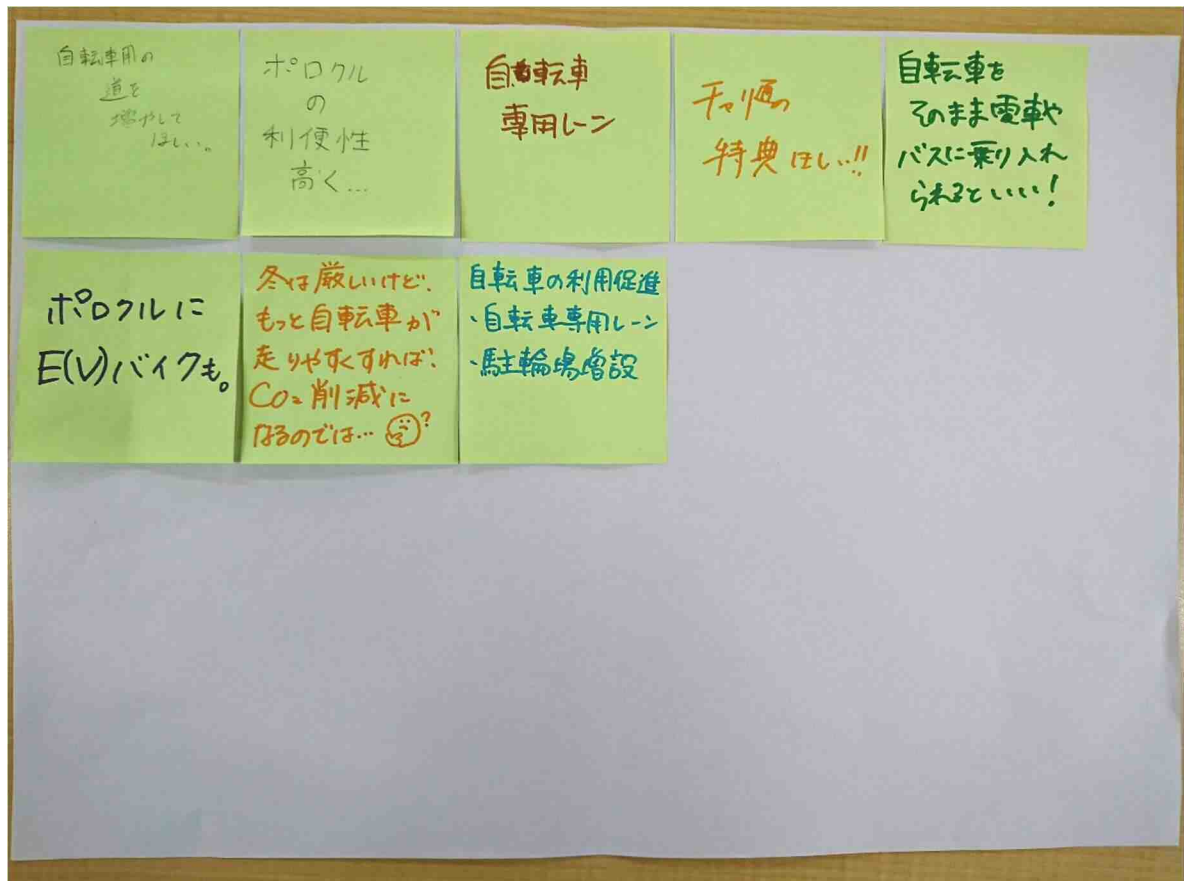 自転車用の
道を
増やして
ほしい。
ポロクル
の
利便性
高く...
自転車
専用レーン
チャリ通の
特典ほしい!!
自転車を
そのまま電車や
バスに乗り入れ
られるといいい!
ポロクルに
E(V)バイクも。
冬は厳しいけど、
もっと自転車が
走りやすくすれば、
CO₂削減に
なるのでは…?
自転車の利用促進
・自転車専用レーン
・駐輪場増設